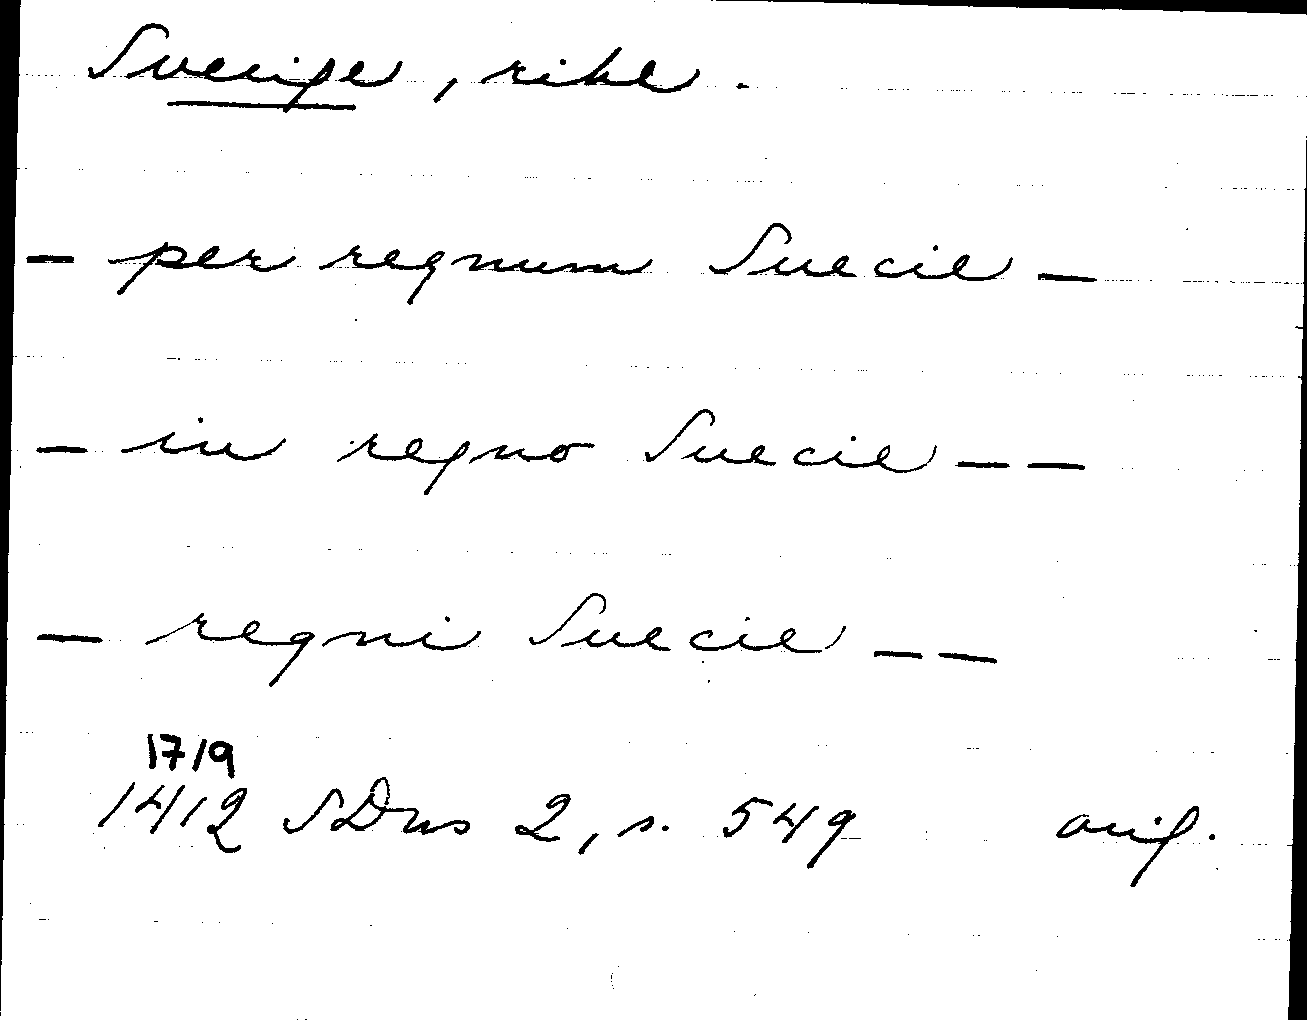 Sverige, rike.
- per regnum Suecie -
- in regno Suecie - -
- regni Suecie - -
17/9
1412 SDns 2, s. 549 orig.